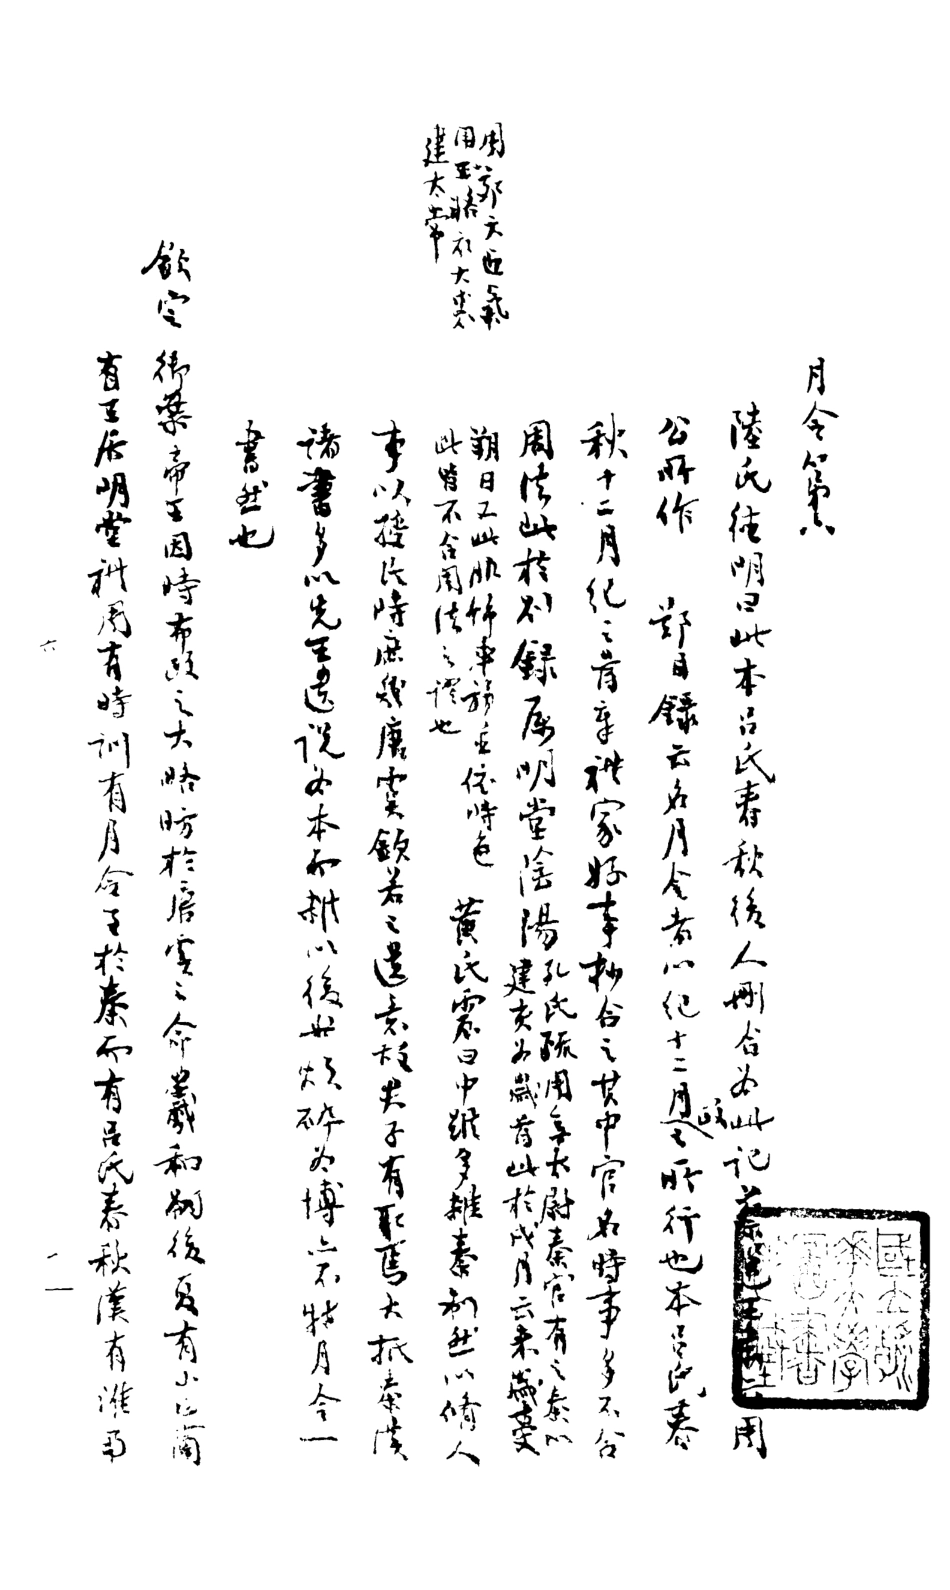 月令第六
陸氏德明曰此本呂氏春秋後人刪合為此記蔡邕王肅云周
公所作 鄭目錄云名月令者以紀十二月政之所行也本呂氏春
秋十二月紀之首章禮家好事抄合之其中官名時事多不合
周法此於別錄屬明堂陰陽
孔氏疏周無太尉秦官有之秦以
建亥為歲首此於戌月云來歲受
朔日又此服飾車旂並依時色
此皆不合周法之證也
黃氏震曰中雖多雜秦制然以脩人
事以授民時庶幾唐虞欽若之遺意在夫子有取焉大抵秦漢
諸書多以先王遺說為本而雜以後世煩碎為博亦不特月令一
書然也
周郊天迎氣
用玉輅衣大裘
建太常
欽定
御案帝王因時布政之大略昉於唐虞之命羲和嗣後夏有小正商
有王居明堂禮周有時訓有月令至於秦而有呂氏春秋漢有淮南
六
一
國立清華大學
圖書